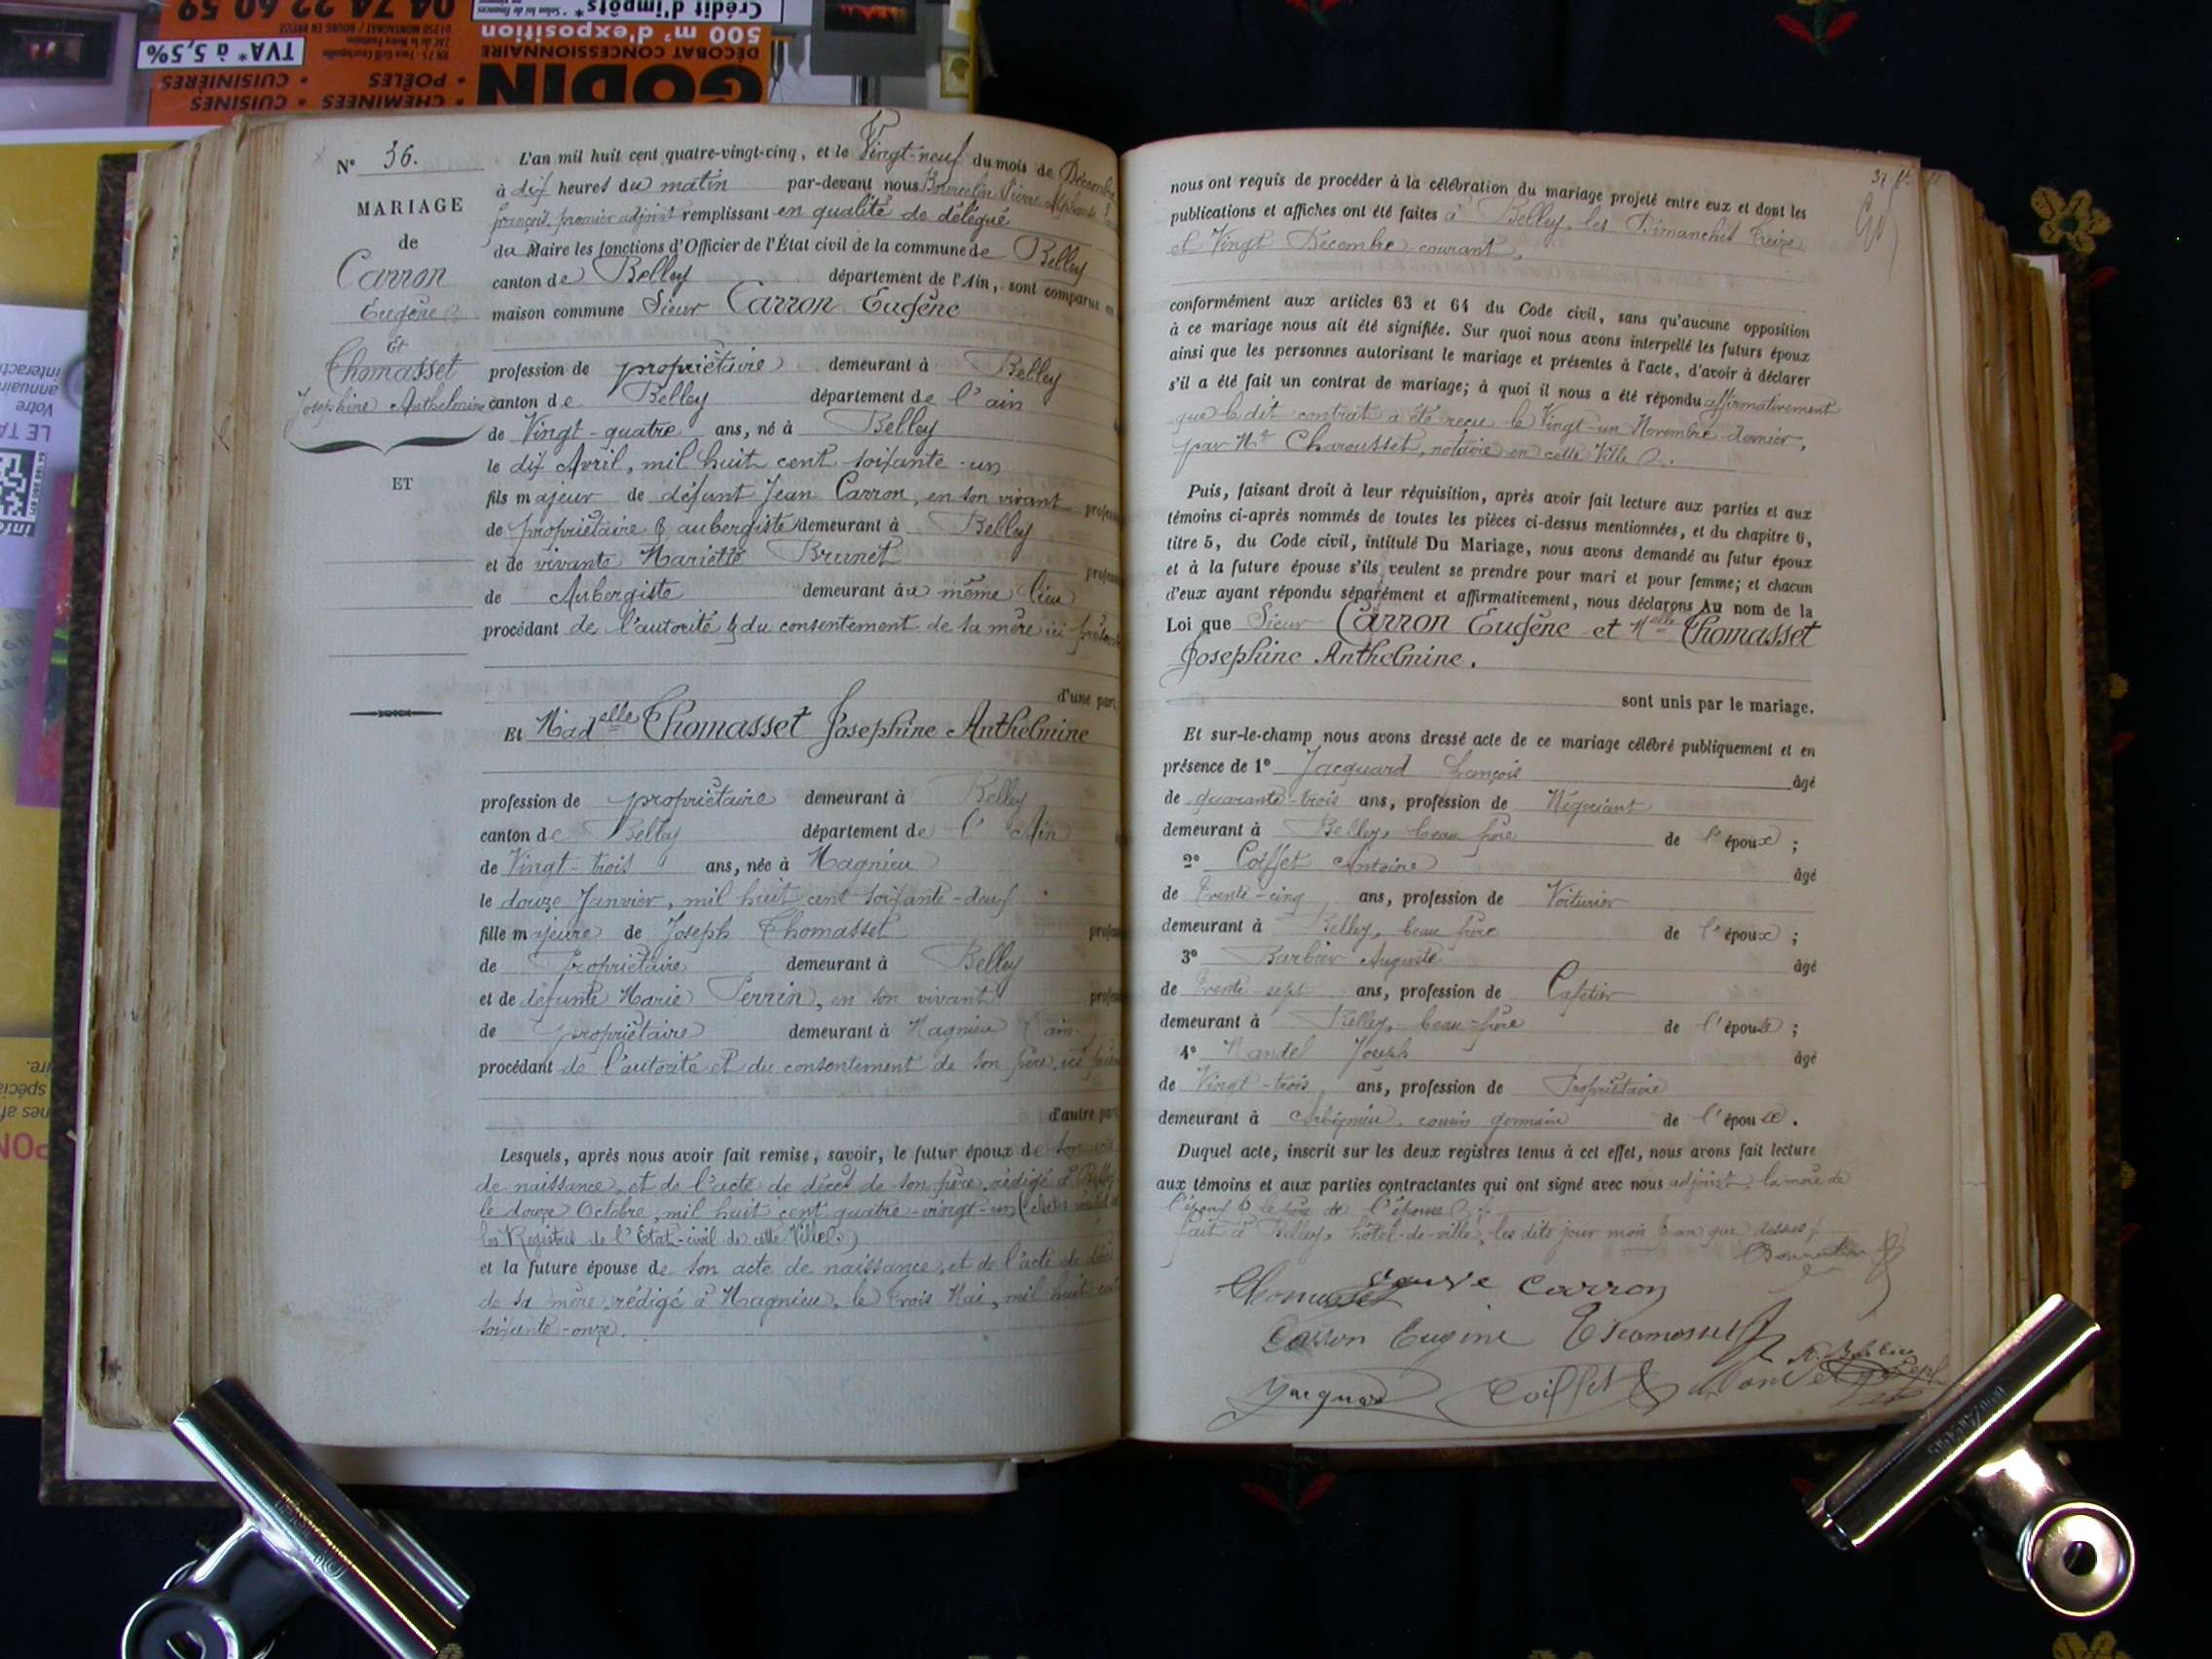 N° 36.
MARIAGE
de
Carron
Eugène
Et
Thomasset
Josephine Anthelmine
ET
L'an mil huit cent quatre-vingt-cinq, et le Vingt-neuf du mois de Décembre
à dix heures du matin par-devant nous Pierre
françois, premier adjoint remplissant en qualité de délégué
du Maire les fonctions d'Officier de l'État civil de la commune de Belley
canton de Belley département de l'Ain, sont comparus en
maison commune Sieur Carron Eugène
profession de propriétaire demeurant à Belley
canton de Belley département de l'ain
de Vingt-quatre ans, né à Belley
le dix Avril, mil huit cent soixante-un
fils majeur de défunt Jean Carron, en son vivant
de propriétaire & aubergiste demeurant à Belley
et de vivante Mariette Brunet
de Aubergiste demeurant au même lieu
procédant de l'autorité & du consentement de sa mère ici présente
d'une part
Et Madelle Thomasset Josephine Anthelmine
profession de propriétaire demeurant à Belley
canton de Belley département de l'Ain
de Vingt-trois ans, née à Magnieu
le douze Janvier, mil huit cent soixante-deux
fille majeure de Joseph Thomasset
de Propriétaire demeurant à Belley
et de défunte Marie Perrin, en son vivant
de propriétaire demeurant à Magnieu (ain)
procédant de l'autorité et du consentement de son père, ici
d'autre part
Lesquels, après nous avoir fait remise, savoir, le futur époux de son acte
de naissance, et de l'acte de décès de son père, rédigé à Belley
le douze Octobre, mil huit cent quatre-vingt-un
les Registres de l'Etat-civil de cette Ville)
et la future épouse de son acte de naissance, et de l'acte de décès
de sa mère, rédigé à Magnieu, le trois Mai, mil huit cent
soixante-onze.
nous ont requis de procéder à la célébration du mariage projeté entre eux et dont les
publications et affiches ont été faites à Belley, les Dimanches treize
et Vingt Décembre courant,
conformément aux articles 63 et 64 du Code civil, sans qu'aucune opposition
à ce mariage nous ait été signifiée. Sur quoi nous avons interpellé les futurs époux
ainsi que les personnes autorisant le mariage et présentes à l'acte, d'avoir à déclarer
s'il a été fait un contrat de mariage; à quoi il nous a été répondu affirmativement
que le dit contrat a été reçu le Vingt-un Novembre dernier,
par Me Charousset, notaire en cette Ville.
Puis, faisant droit à leur réquisition, après avoir fait lecture aux parties et aux
témoins ci-après nommés de toutes les pièces ci-dessus mentionnées, et du chapitre 6,
titre 5, du Code civil, intitulé Du Mariage, nous avons demandé au futur époux
et à la future épouse s'ils veulent se prendre pour mari et pour femme; et chacun
d'eux ayant répondu séparément et affirmativement, nous déclarons Au nom de la
Loi que Sieur Carron Eugène et Melle Thomasset
Josephine Anthelmine.
sont unis par le mariage.
Et sur-le-champ nous avons dressé acte de ce mariage célébré publiquement et en
présence de 1° Jacquard françois âgé
de quarante-trois ans, profession de Négociant
demeurant à Belley, beau frère de l'époux ;
2° Coiffet Antoine âgé
de trente-cinq ans, profession de Voiturier
demeurant à Belley, beau frère de l'époux ;
3° Barbier Auguste âgé
de trente-sept ans, profession de Cafetier
demeurant à Belley, beau-frère de l'épouse ;
4° Mandel Joseph âgé
de Vingt-trois ans, profession de Propriétaire
demeurant à Arbignieu, cousin germain de l'épouse.
Duquel acte, inscrit sur les deux registres tenus à cet effet, nous avons fait lecture
aux témoins et aux parties contractantes qui ont signé avec nous adjoint, la mère de
l'époux & le père de l'épouse
fait à Belley, hôtel-de-ville, les dits jour mois & an que dessus.
Thomasset veuve Carron
Carron Eugine Thomasset
Jacquard Coiffet
GODIN
DÉCOBAT CONCESSIONNAIRE
500 m² d'exposition
Crédit d'impôts*
• CHEMINÉES • CUISINES
• POÊLES • CUISINIÈRES
TVA* à 5,5%
04 74 22 60 59